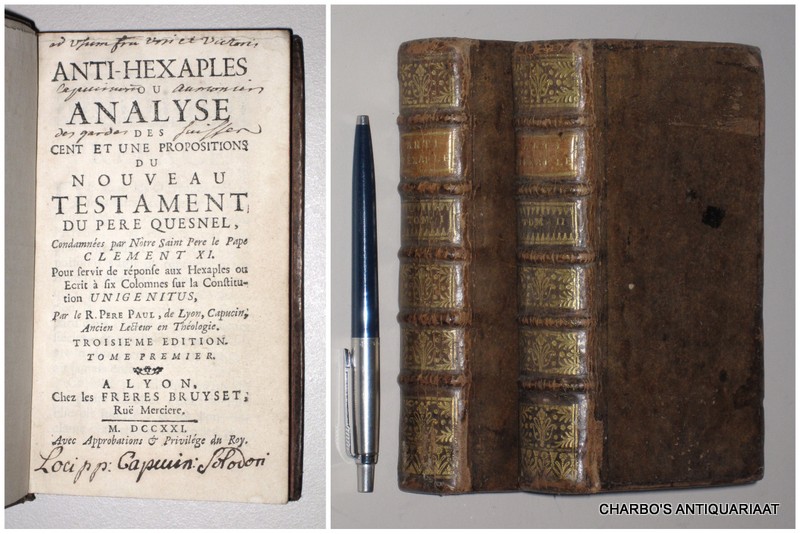 ad Usum fris
ANTI-HEXAPLES
OU
ANALYSE
des gardes DES Suisses
CENT ET UNE PROPOSITIONS
DU
NOUVEAU
TESTAMENT,
DU PERE QUESNEL,
Condamnées par Nôtre Saint Pere le Pape
CLEMENT XI.
Pour servir de réponse aux Hexaples ou
Ecrit à six Colomnes sur la Constitu-
tion UNIGENITUS,
Par le R. PERE PAUL, de Lyon, Capucin,
Ancien Lecteur en Théologie.
TROISIE'ME EDITION.
TOME PREMIER.
A LYON,
Chez les FRERES BRUYSET,
Ruë Merciere.
M. DCCXXI.
Avec Approbations & Privilége du Roy.
Loci pp: Capucin:
TOME I
TOME II
CHARBO'S ANTIQUARIAAT